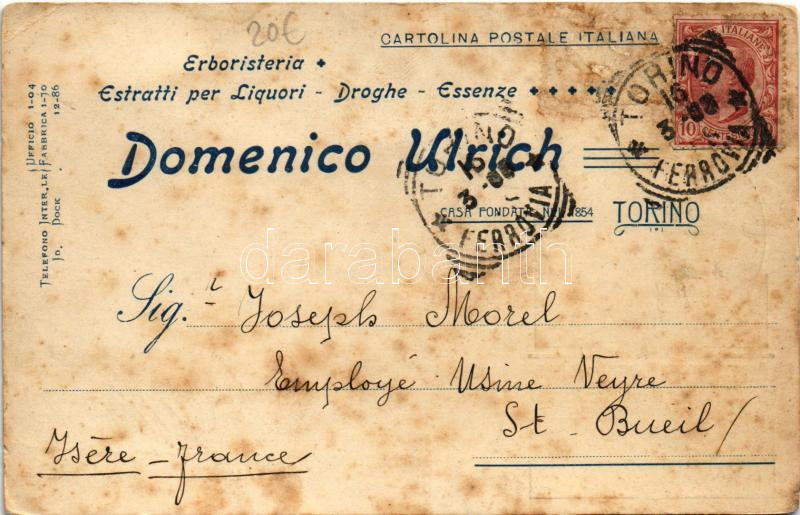 20€
CARTOLINA POSTALE ITALIANA
Erboristeria
Estratti per Liquori - Droghe - Essenze
Domenico Ulrich
CASA FONDATA NEL 1854 TORINO
TELEFONO INTER.LE UFFICIO 1-04
FABBRICA 1-70
ID. DOCK . 12-86
TORINO
FERROVIA
TORINO
FERROVIA
10
Sig.r Joseph Morel
Employé Usine Veyre
St. Bueil
Isère - France
darabanth